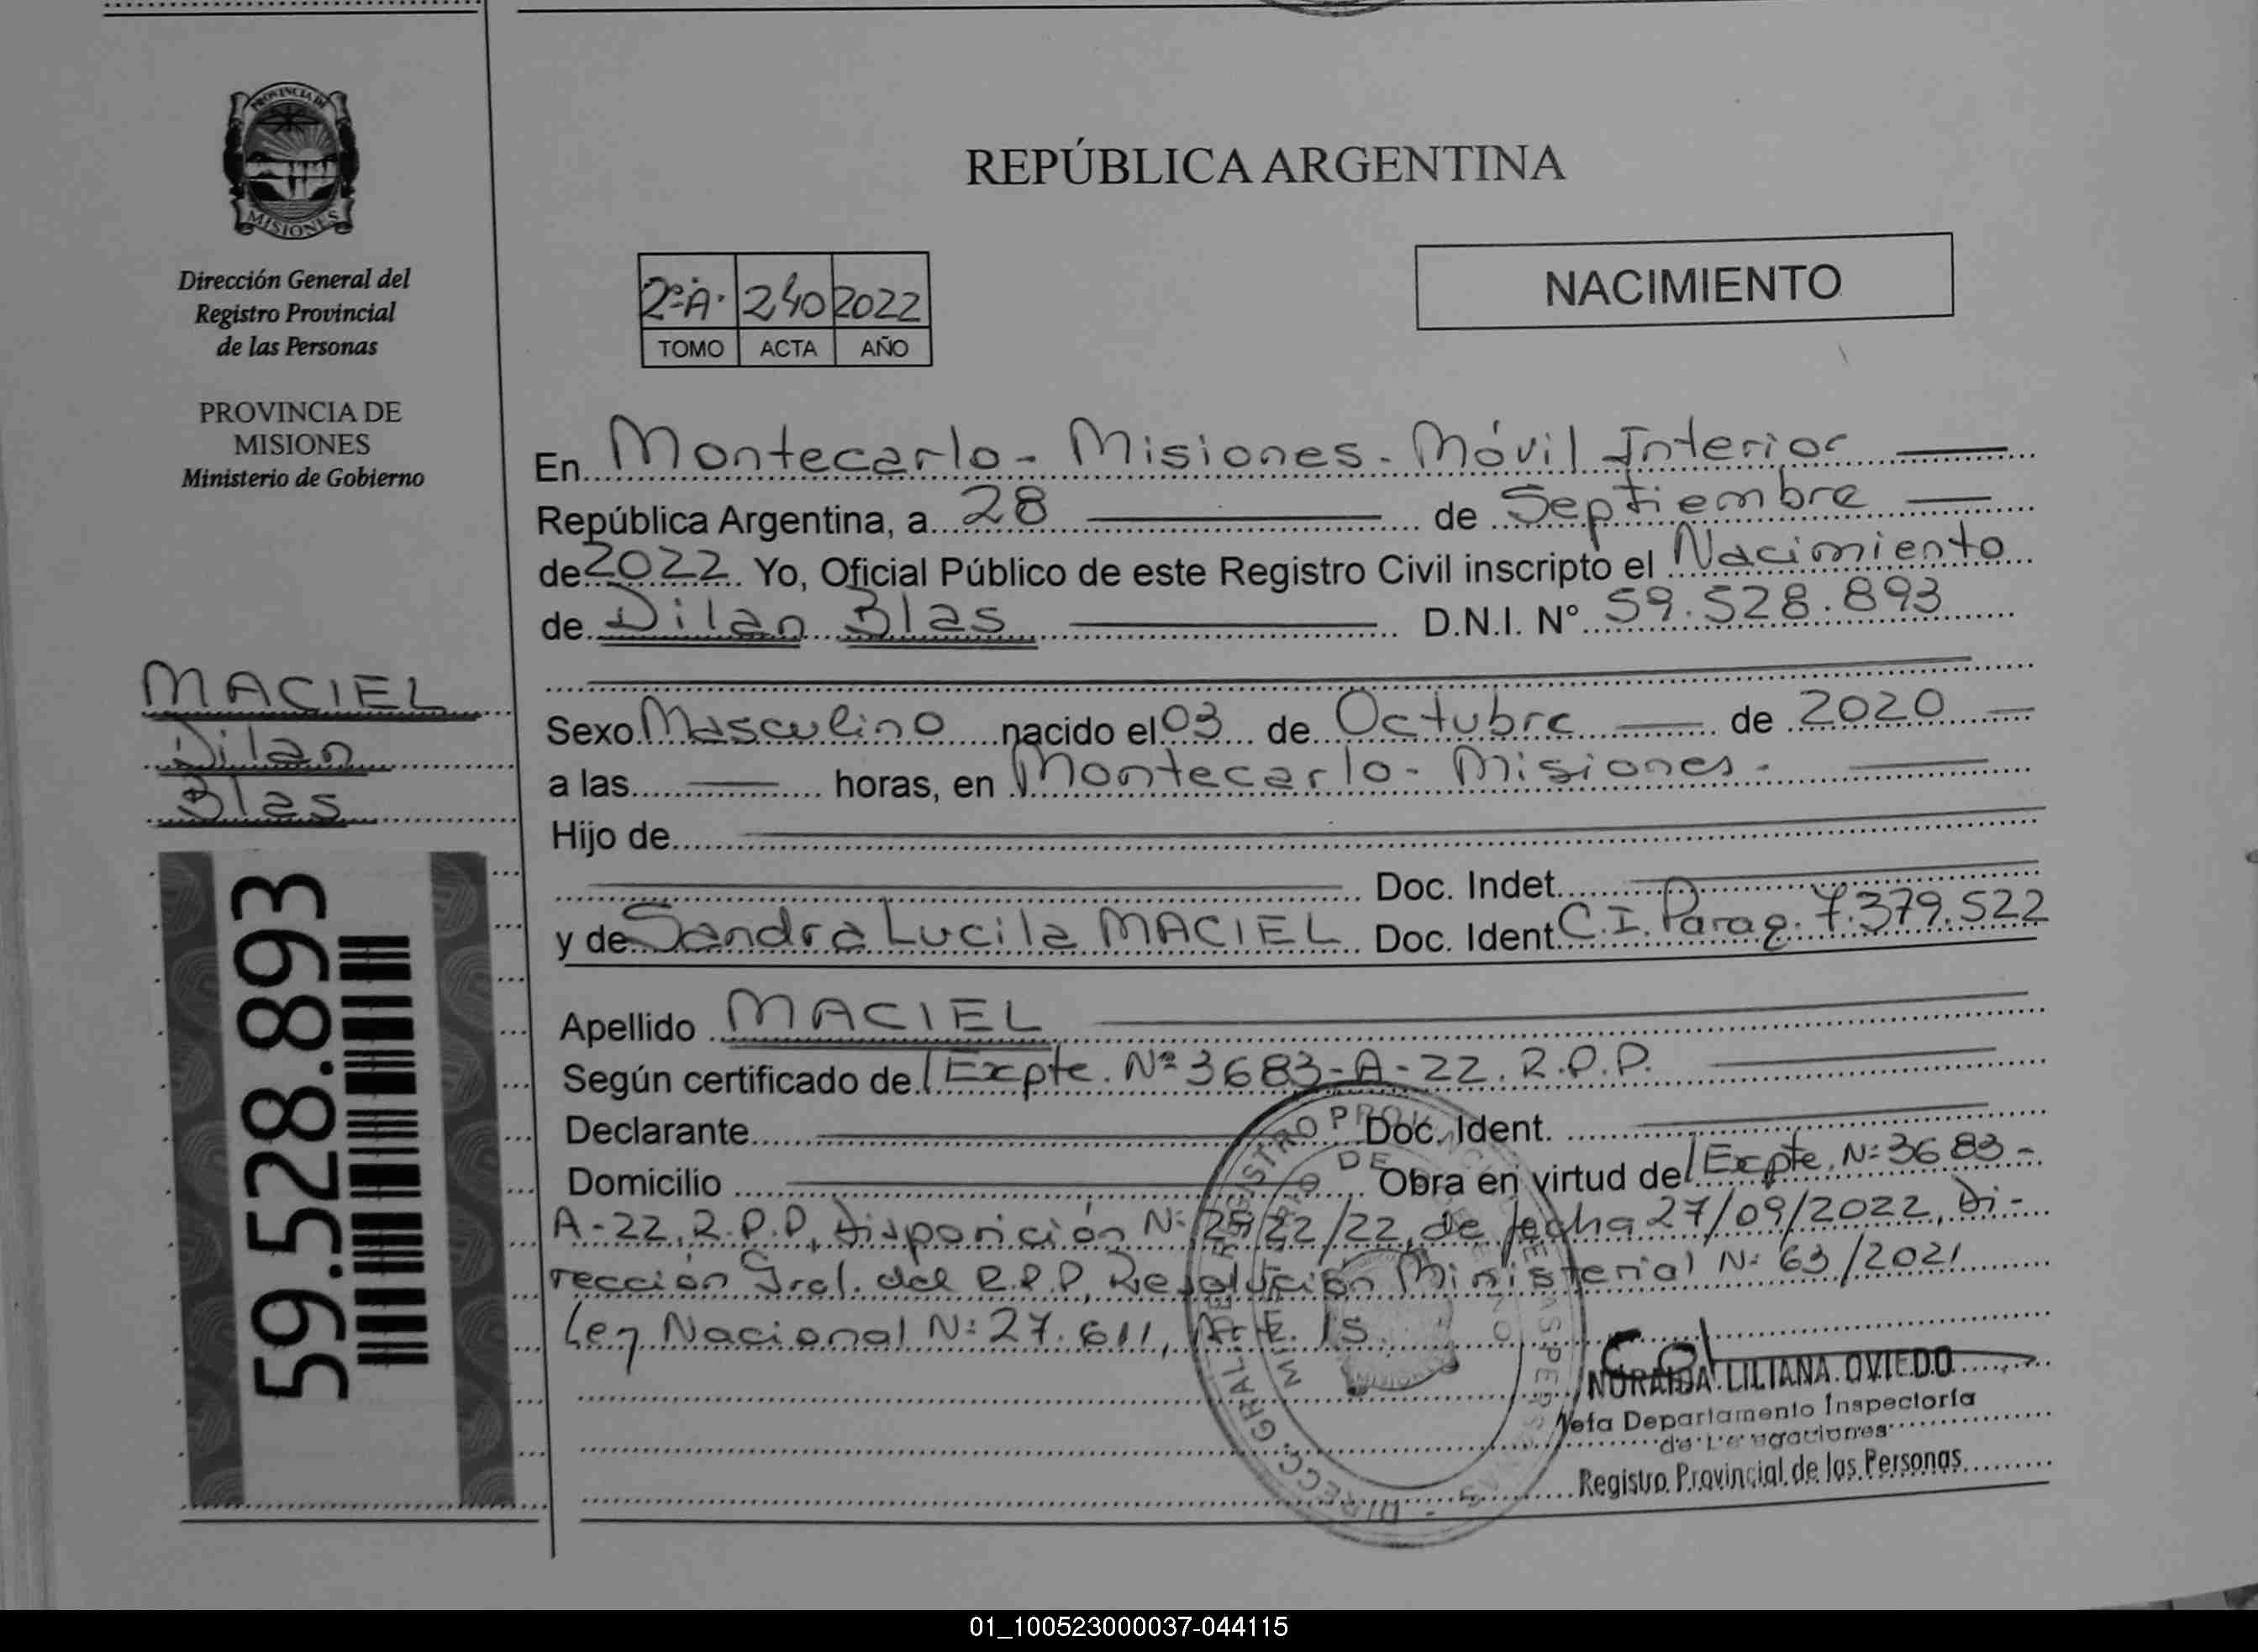 PROVINCIA DE
MISIONES
Dirección General del
Registro Provincial
de las Personas
PROVINCIA DE
MISIONES
Ministerio de Gobierno
MACIEL
Dilan
Blas
59.528.893
REPÚBLICA ARGENTINA
2º A. 240 2022
TOMO ACTA AÑO
NACIMIENTO
En Montecarlo - Misiones - Móvil Interior
República Argentina, a 28 de Septiembre
de 2022. Yo, Oficial Público de este Registro Civil inscripto el Nacimiento
de Dilan Blas D.N.I. Nº 59.528.893
Sexo Masculino nacido el 03 de Octubre de 2020
a las horas, en Montecarlo - Misiones -
Hijo de
Doc. Indet.
y de Sandra Lucila MACIEL Doc. Ident. C.I. Parag. 7.379.522
Apellido MACIEL
Según certificado del Expte. Nº 3683-A-22. R.P.P.
Declarante Doc. Ident.
Domicilio Obra en virtud del Expte. Nº 3683-
A-22, R.P.P, Disposición Nº /22, de fecha 27/09/2022, Di-
rección Gral. del R.P.P, Resolución Ministerial Nº 63/2021
Ley Nacional Nº 27.611, Art. 15.
NORAIDA LILIANA OVIEDO
Jefa Departamento Inspectoría
de Delegaciones
Registro Provincial de las Personas
01_100523000037-044115